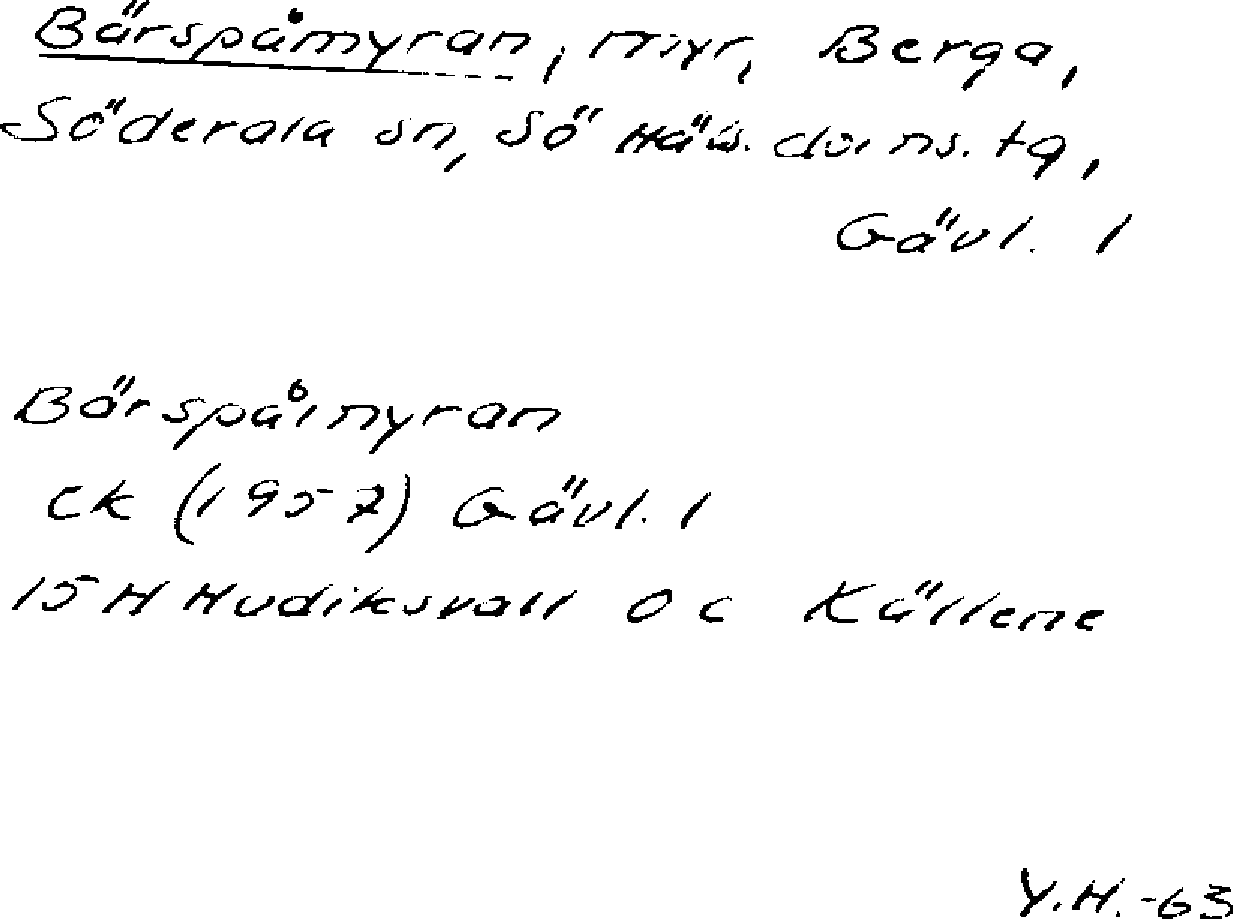 Bärspåmyran, myr, Berga,
Söderala sn, Sö Häls. doms. tg,
Gävl. l
Bärspåmyran
Ek (1957) Gävl. l
15 H Hudiksvall 0 c Källene
Y.H.-63